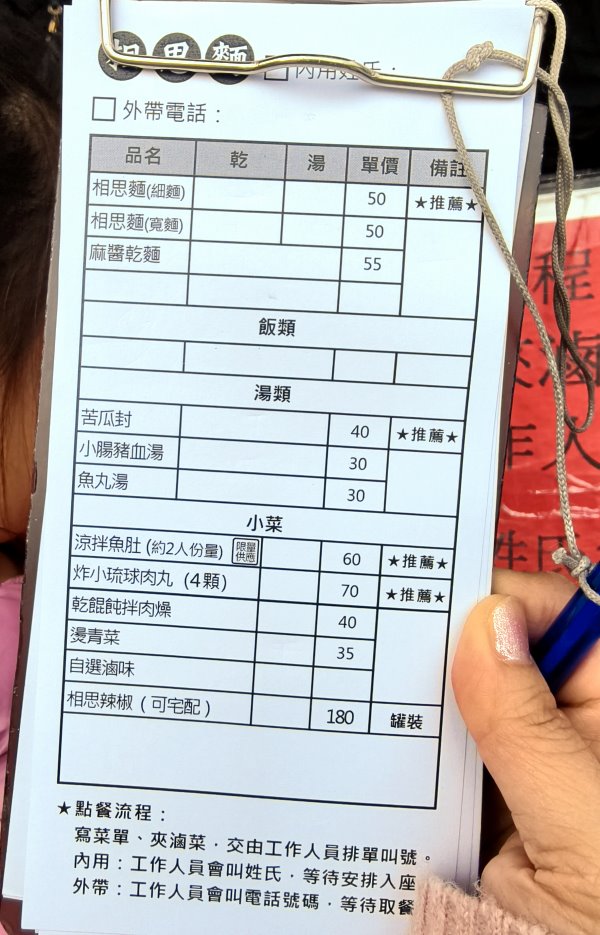 相思麵 □內用姓氏：
□外帶電話：
品名 乾 湯 單價 備註
相思麵(細麵) 50 ★推薦★
相思麵(寬麵) 50
麻醬乾麵 55
飯類
湯類
苦瓜封 40 ★推薦★
小腸豬血湯 30
魚丸湯 30
小菜
涼拌魚肚(約2人份量) 限量供應 60 ★推薦★
炸小琉球肉丸(4顆) 70 ★推薦★
乾餛飩拌肉燥 40
燙青菜 35
自選滷味
相思辣椒(可宅配) 180 罐裝
★點餐流程：
寫菜單、夾滷菜，交由工作人員排單叫號。
內用：工作人員會叫姓氏，等待安排入座
外帶：工作人員會叫電話號碼，等待取餐
程
滷
作人
姓氏